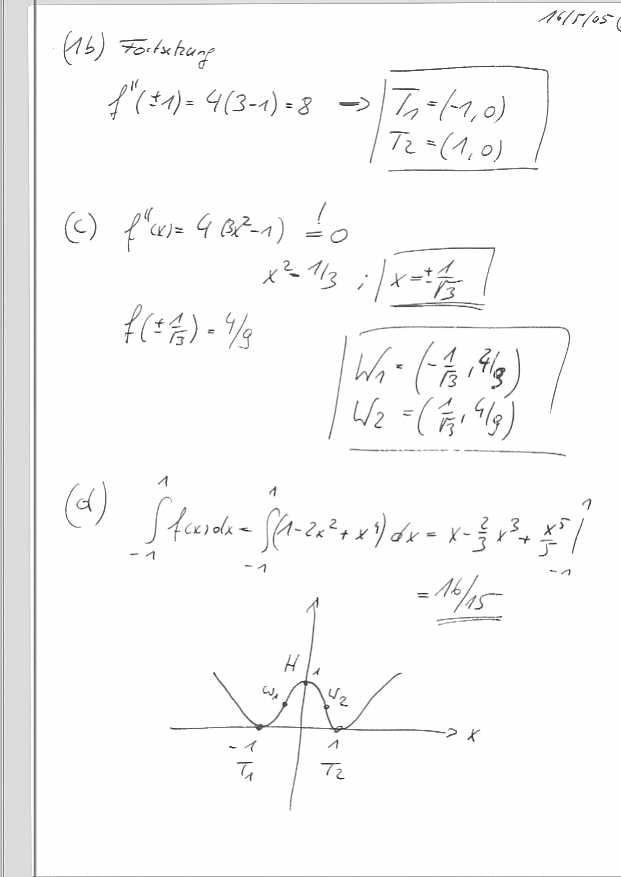 16/5/05 (
(1b) Fortsetzung
f''(±1) = 4(3-1) = 8 → T1 = (-1, 0)
T2 = (1, 0)
(c) f''(x) = 4(3x²-1) =! 0
x² = 1/3 ; x = ± 1/√3
f(± 1/√3) = 4/9
W1 = (-1/√3, 4/9)
W2 = (1/√3, 4/9)
(d) ∫_{-1}^{1} f(x)dx = ∫_{-1}^{1} (1-2x²+x⁴) dx = x - 2/3 x³ + x⁵/5 |_{-1}^{1}
= 16/15
H 1
W1 W2
-1 1 x
T1 T2